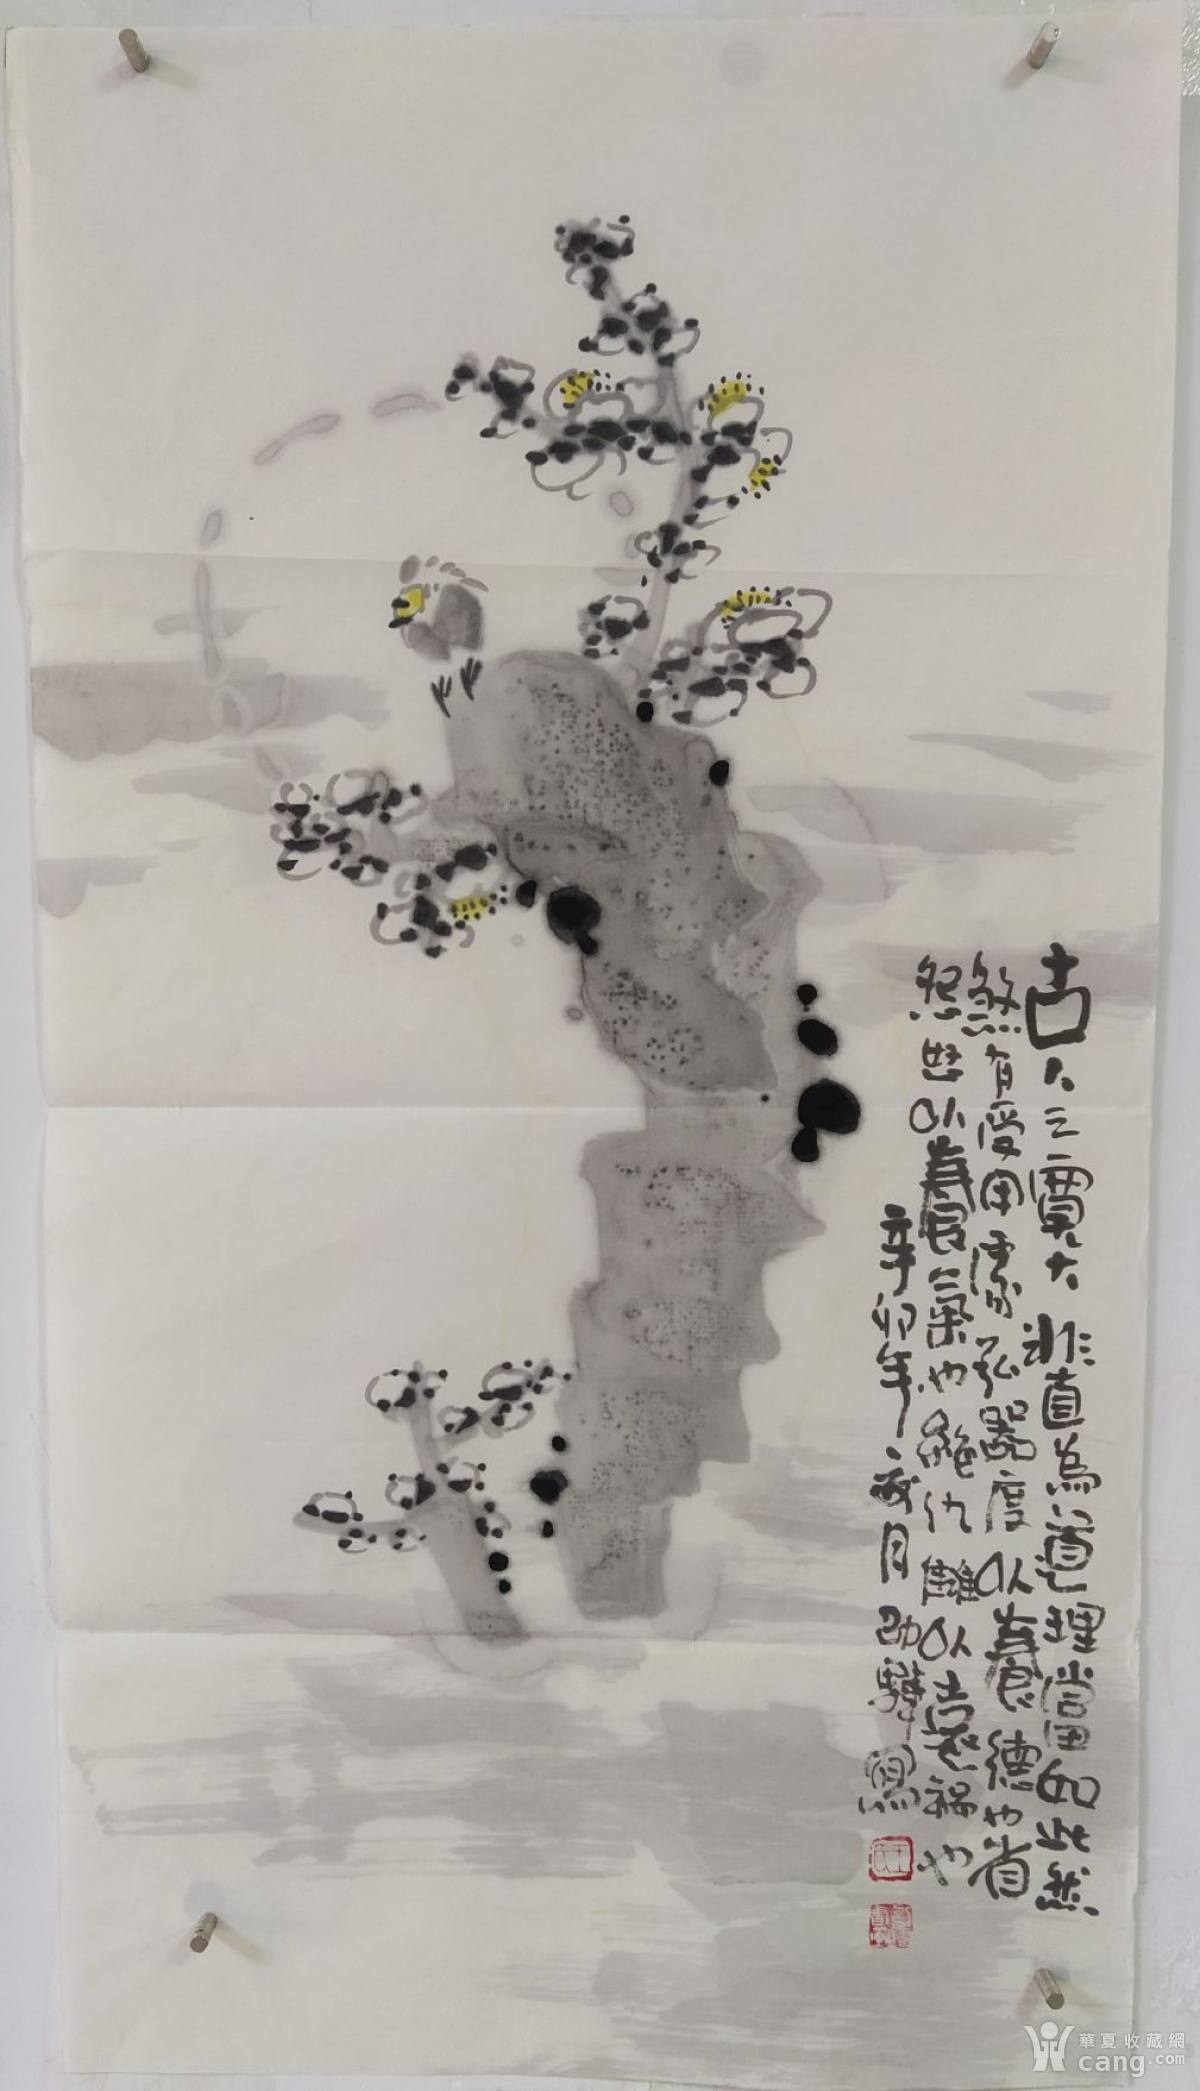 古人之寬大非直為道理當如此然
煞有受用處弘器度以養德也省
怨怒以養氣也絕仇讎以遠禍也
辛卯年月寫
華夏收藏網
cang.com